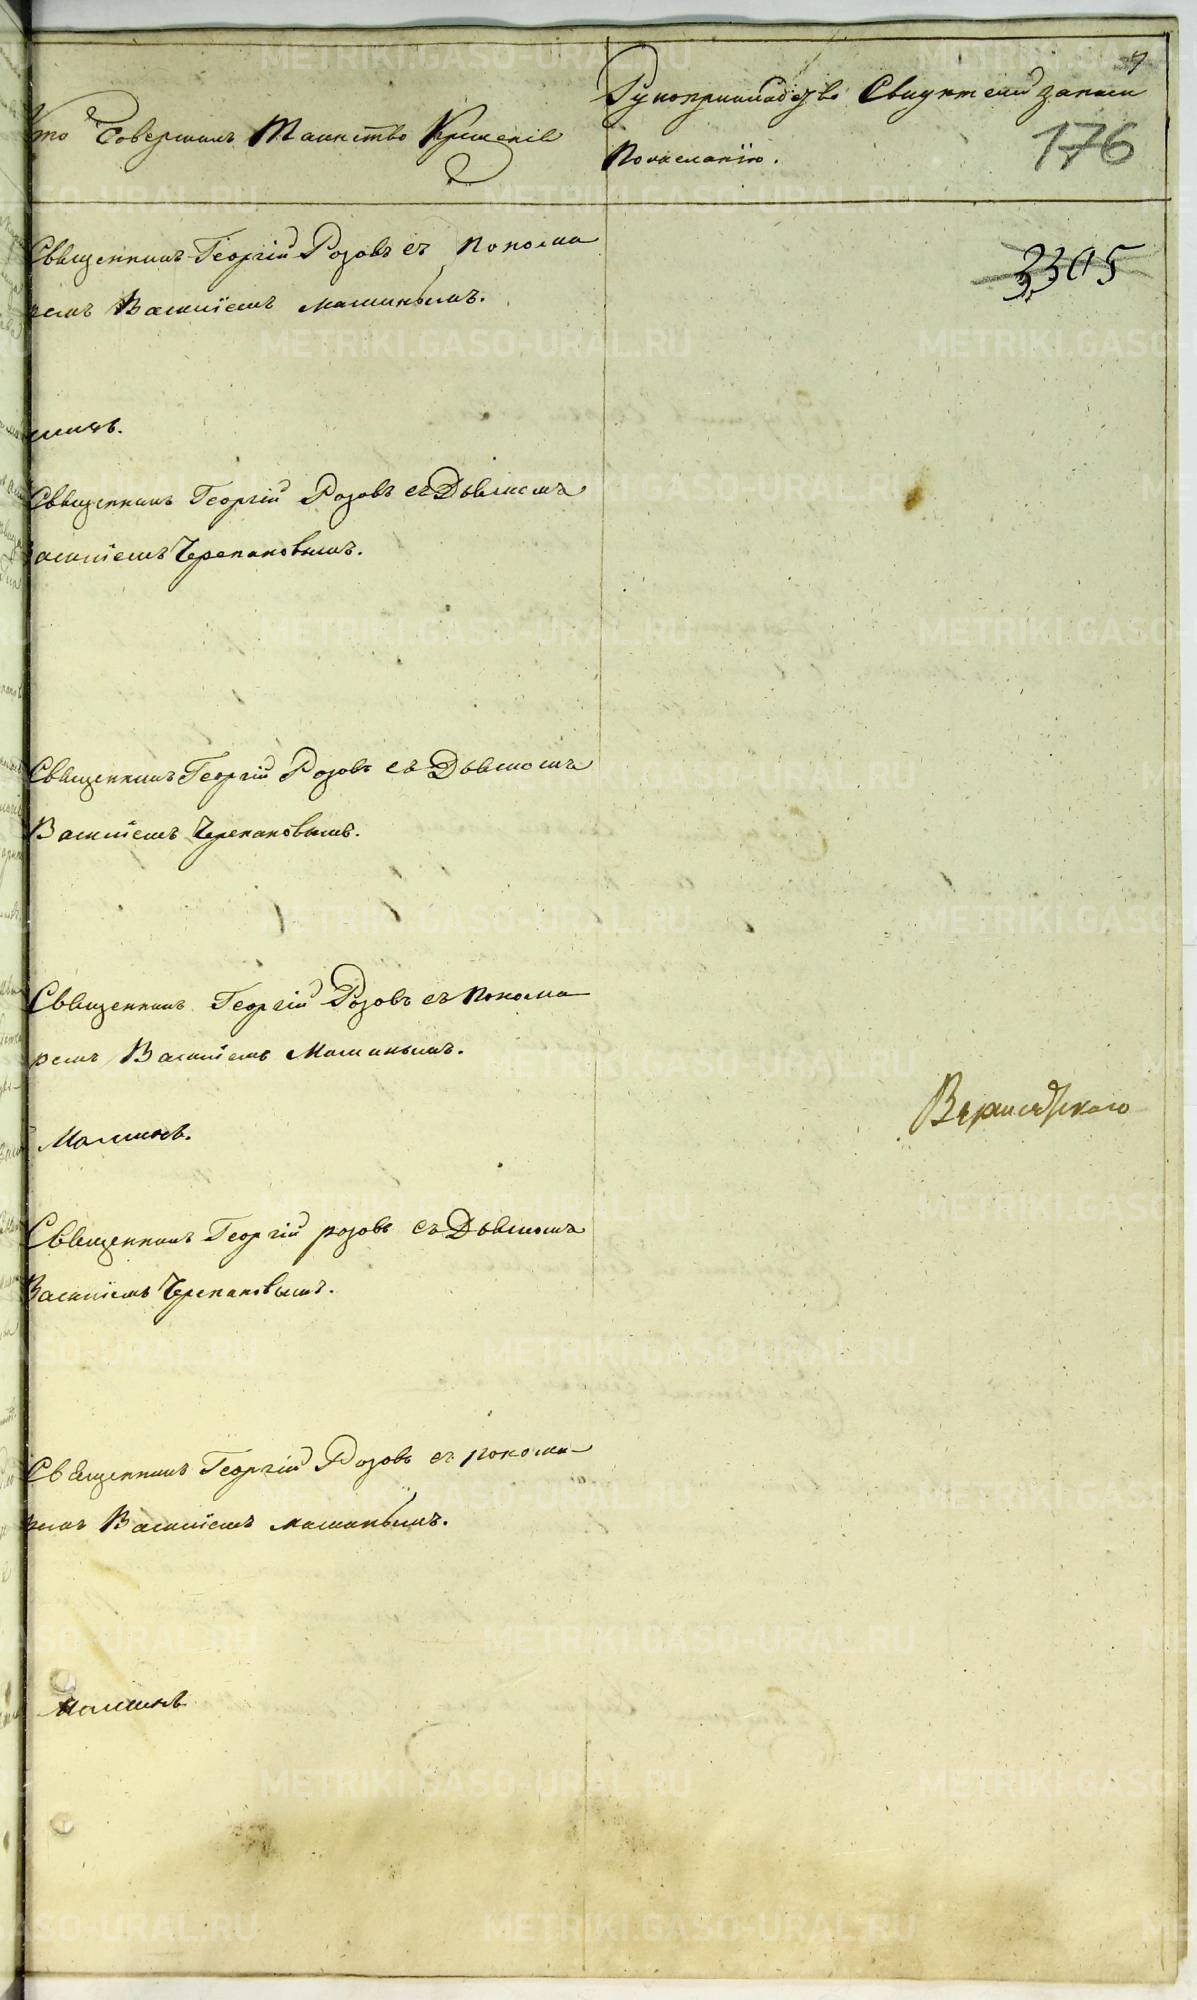 7
Кто Совершалъ Таинство Крещенія
Рукоприкладство Свидѣтелей записи
По желанію.
176
3305
Священникъ Георгій Розовъ съ Понома
ремъ Василіемъ Малиннымъ.
Священникъ Георгій Розовъ съ Дьякомъ
Василіемъ Черепановымъ.
Священникъ Георгій Розовъ съ Дьякомъ
Василіемъ Черепановымъ.
Священникъ Георгій Розовъ съ Понома
ремъ Василіемъ Малинымъ.
Малинъ.
Священникъ Георгій розовъ съ Дьякомъ
Василіемъ Черепановымъ.
Священникъ Георгій Розовъ съ понома
ремъ Василіемъ малинымъ.
Малинъ
METRIKI.GASO-URAL.RU